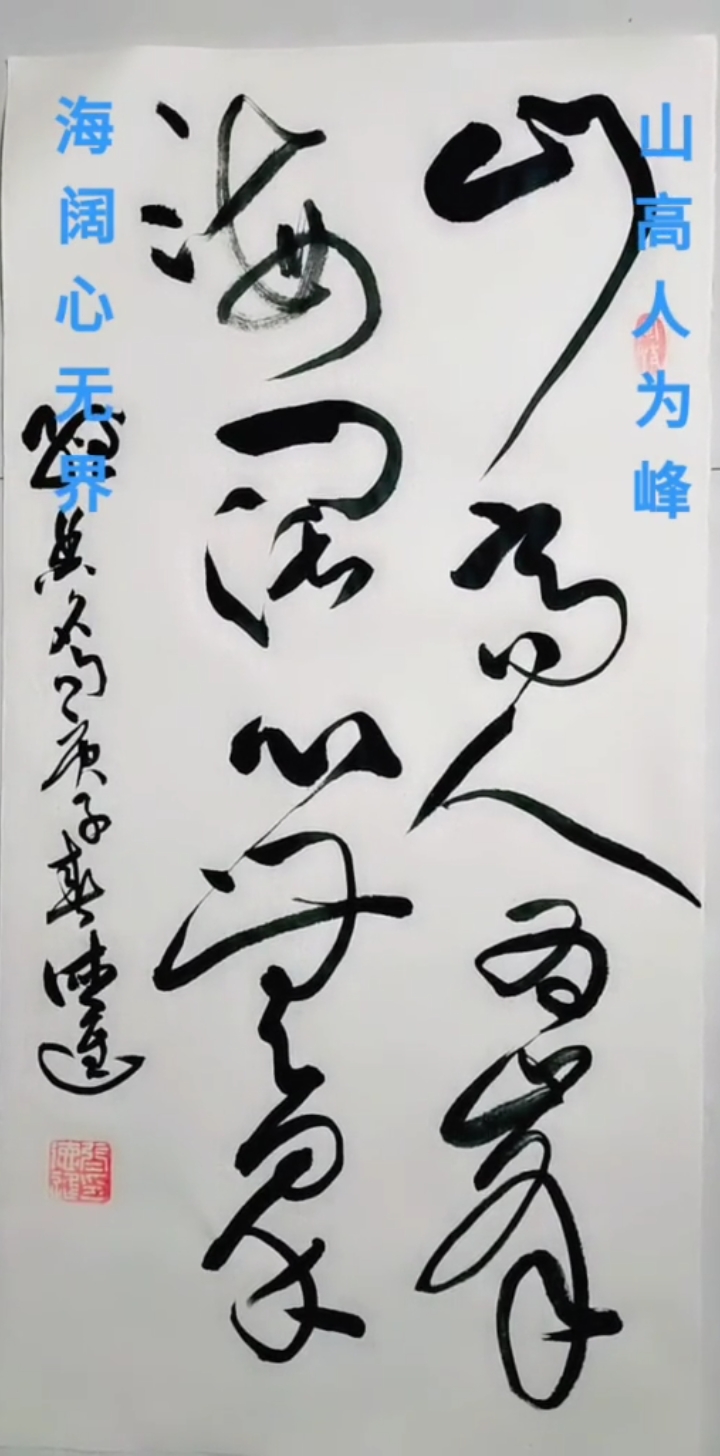 山高人为峰
山高人为峰
海阔心无界
海阔心无界
名句庚子春